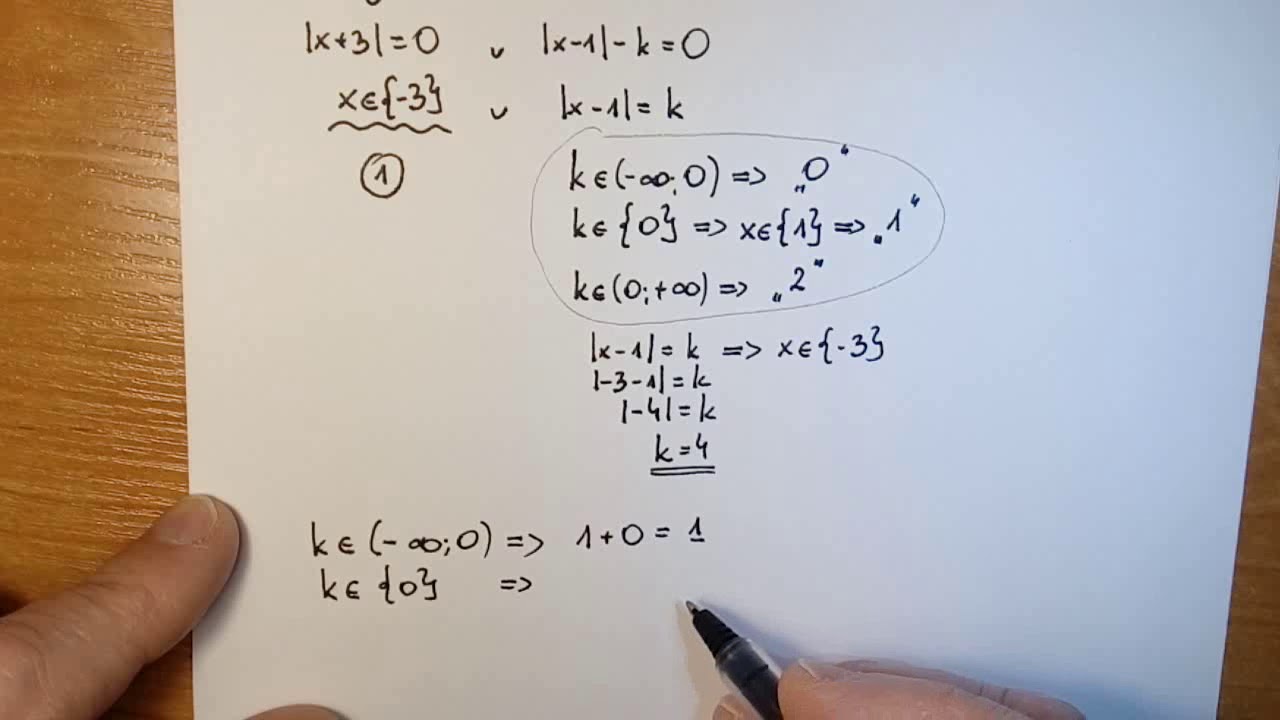 |x+3|=0 ∨ |x-1|-k=0
x∈{-3} ∨ |x-1|=k
1
k∈(-∞;0) => „0"
k∈{0} => x∈{1} => „1"
k∈(0;+∞) => „2"
|x-1|=k => x∈{-3}
|-3-1|=k
|-4|=k
k=4
k∈(-∞;0) => 1+0=1
k∈{0} =>